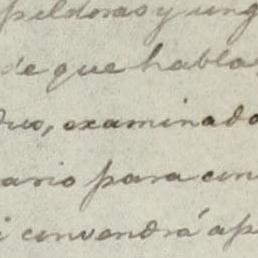 píldoras y ung
de que habla
duo, examinado
ario para con
i convendrá ap